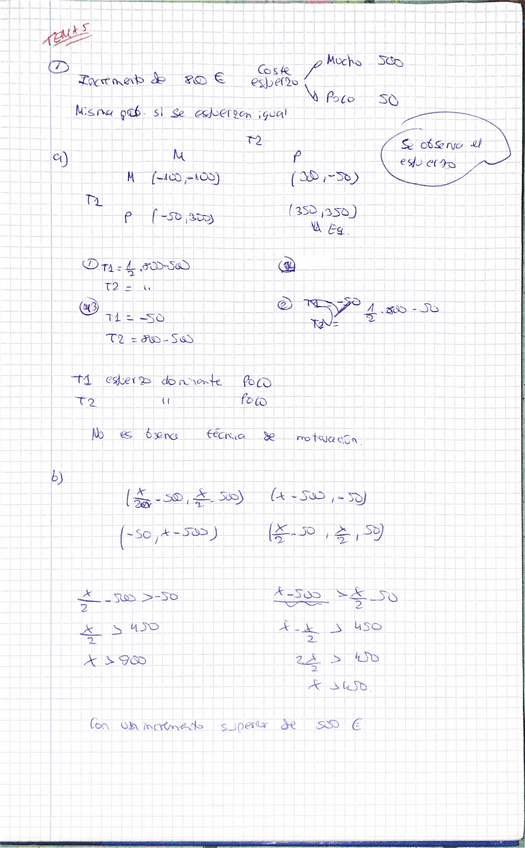 TEMA 5
① Incremento de 800 € Coste esfuerzo Mucho 500
Poco 50
Misma prob. si se esfuerzan igual
Se observa el esfuerzo
T2
a) M P
M (-100,-100) (300,-50)
T2
P (-50,300) (350,350)
Eq.
① T1 = 1/2 · 800-500
T2 = "
3 T1 = -50
T2 = 800-500
② -50 1/2 · 800 - 50
T1 esfuerzo dominante Poco
T2 " Poco
No es buena técnica de motivación
b)
(x/2 - 500, x/2 - 500) (x-500, -50)
(-50, x-500) (x/2 - 50, x/2, 50)
x/2 - 500 > -50 x-500 > x/2 - 50
x/2 > 450 x - x/2 > 450
x > 900 2x/2 > 450
x > 450
Con un incremento superior de €